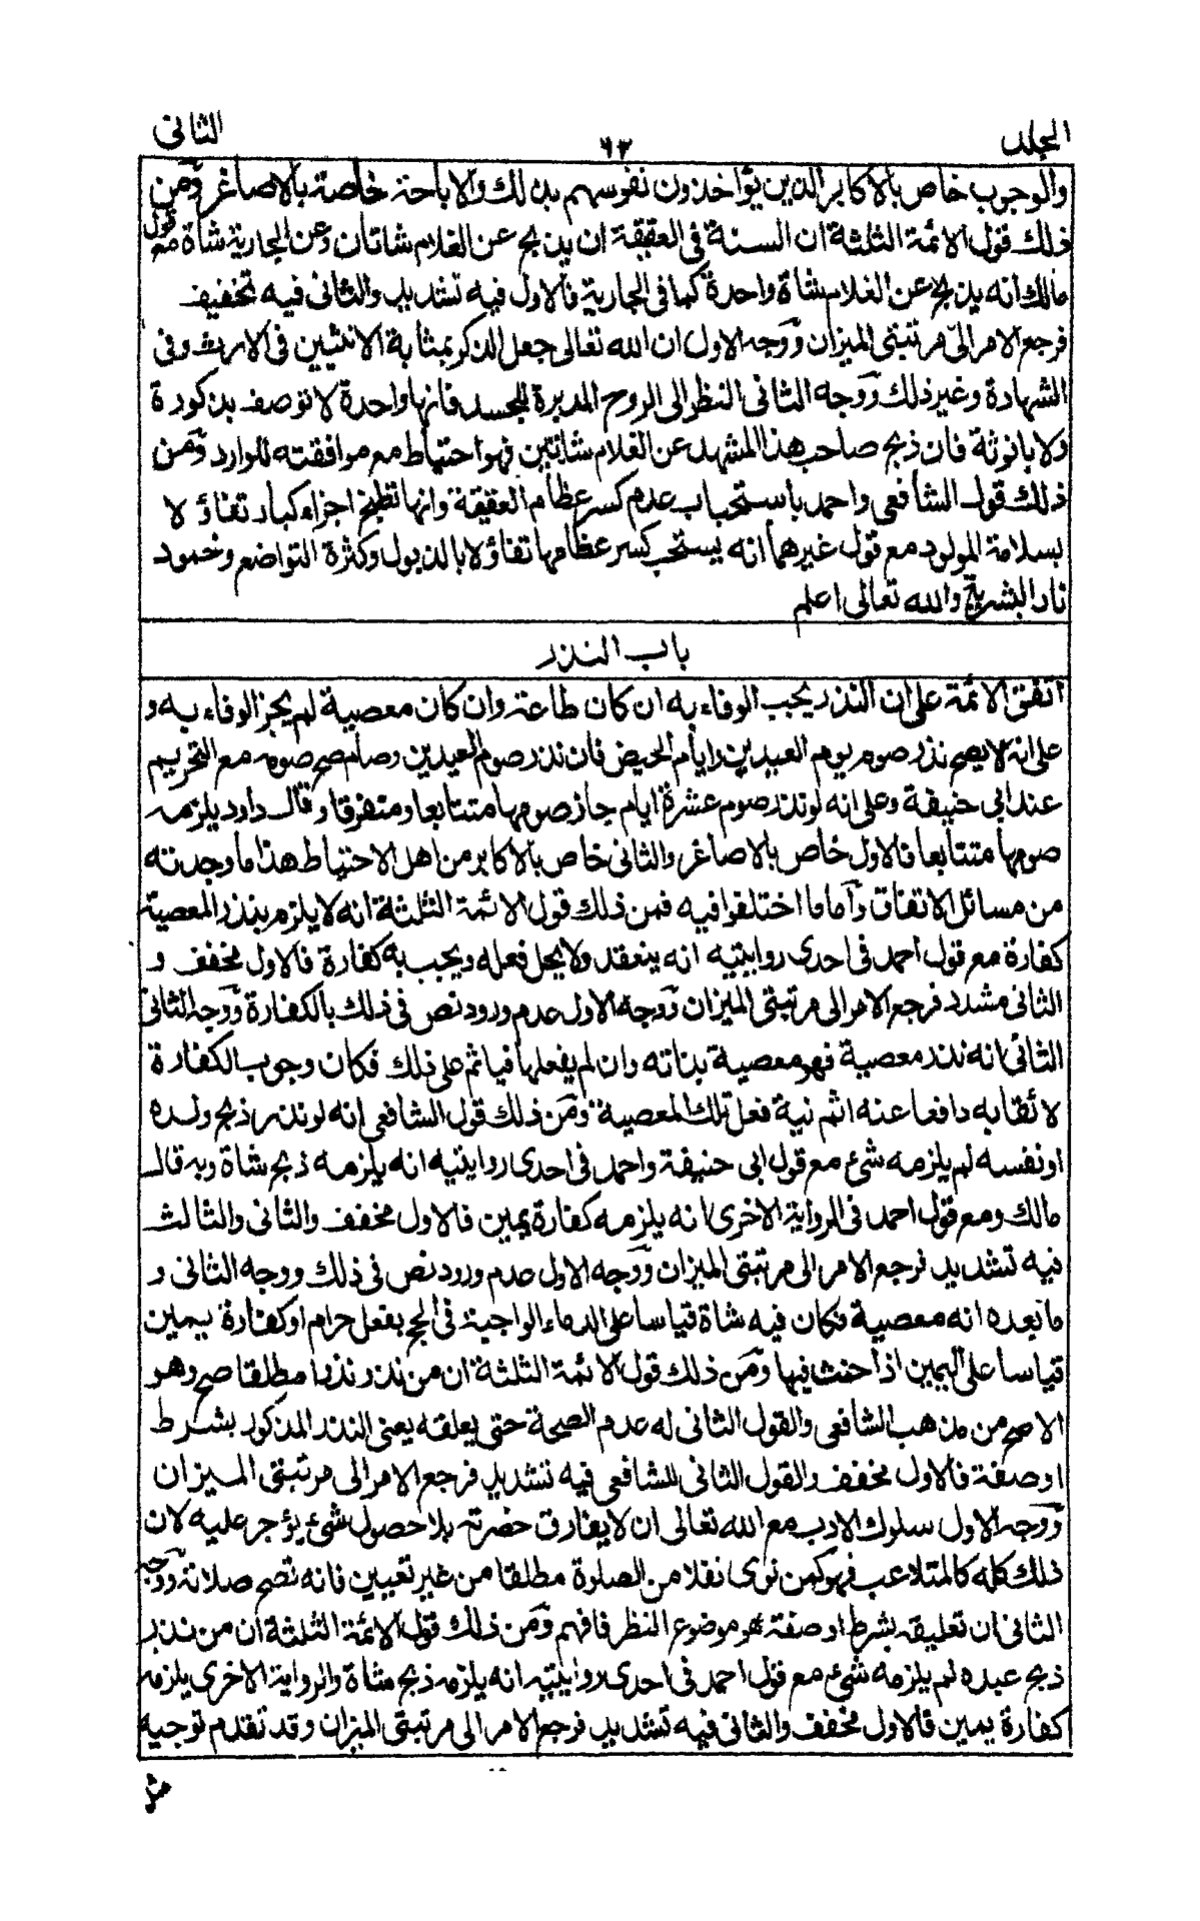 المجلد
٦٢
الثانى
والوجوب خاص بالاكابر الذين يؤاخذون نفوسهم بذلك والاباحة خاصة بالاصاغر ومن
ذلك قول الائمة الثلثة ان السنة فى العقيقة ان يذبح عن الغلام شاتان وعن الجارية شاة مع قول
مالك انه يذبح عن الغلام شاة واحدة كما فى الجارية فالاول فيه تشديد والثانى فيه تخفيف
فرجع الامر الى مرتبتى الميزان ووجه الاول ان الله تعالى جعل الذكر بمثابة الانثيين فى الارث وفى
الشهادة وغير ذلك ووجه الثانى النظر الى الروح المدبرة للجسد فانها واحدة لا توصف بذكورة
ولا بانوثة فان ذبح صاحب هذا المشهد عن الغلام شاتين فهو احتياط مع موافقته للوارد ومن
ذلك قول الشافعى واحمد باستحباب عدم كسر عظام العقيقة وانها تطبخ اجزاء كبار تفاؤلا
بسلامة المولود مع قول غيرهما انه يستحب كسر عظامها تفاؤلا بالذبول وكثرة التواضع وخمود
نار البشرية والله تعالى اعلم
باب النذر
اتفق الائمة على ان النذر يجب الوفاء به ان كان طاعة وان كان معصية لم يجز الوفاء به و
على انه لا يصح نذر صوم يوم العيدين وايام الحيض فان نذر صوم العيدين وصام صح صومه مع التحريم
عند ابى حنيفة وعلى انه لو نذر صوم عشرة ايام جاز صومها متتابعا ومتفرقا وقال داود يلزمه
صومها متتابعا فالاول خاص بالاصاغر والثانى خاص بالاكابر من اهل الاحتياط هذا ما وجدته
من مسائل الاتفاق واما ما اختلفوا فيه فمن ذلك قول الائمة الثلثة انه لا يلزم بنذر المعصية
كفارة مع قول احمد فى احدى روايتيه انه ينعقد ولا يحل فعله ويجب به كفارة فالاول مخفف و
الثانى مشدد فرجع الامر الى مرتبتى الميزان ووجه الاول عدم ورود نص فى ذلك بالكفارة ووجه الثانى
الثانى انه نذر معصية فهو معصية بذاته وان لم يفعلها فياثم على ذلك فكان وجوب الكفارة
لائقا به دافعا عنه اثم نية فعل تلك المعصية ومن ذلك قول الشافعى انه لو نذر ذبح ولده
او نفسه لم يلزمه شئ مع قول ابى حنيفة واحمد فى احدى روايتيه انه يلزمه ذبح شاة وبه قال
مالك ومع قول احمد فى الرواية الاخرى انه يلزمه كفارة يمين فالاول مخفف والثانى والثالث
فيه تشديد فرجع الامر الى مرتبتى الميزان ووجه الاول عدم ورود نص فى ذلك ووجه الثانى و
ما بعده انه معصية فكان فيه شاة قياسا على الدماء الواجبة فى الحج بفعل حرام او كفارة يمين
قياسا على اليمين اذا حنث فيها ومن ذلك قول الائمة الثلثة ان من نذر نذرا مطلقا صح وهو
الاصح من مذهب الشافعى والقول الثانى له عدم الصحة حتى يعلقه يعنى النذر المذكور بشرط
او صفة فالاول مخفف والقول الثانى للشافعى فيه تشديد فرجع الامر الى مرتبتى الميزان
ووجه الاول سلوك الادب مع الله تعالى ان لا يفارق حضرته بلا حصول شئ يؤجر عليه لان
ذلك كله كالمتلاعب فهو كمن نوى نفلا من الصلوة مطلقا من غير تعيين فانه تصح صلاته ووجه
الثانى ان تعليقه بشرط او صفة هو موضوع النظر فافهم ومن ذلك قول الائمة الثلثة ان من نذر
ذبح عبده لم يلزمه شئ مع قول احمد فى احدى روايتيه انه يلزمه ذبح شاة والرواية الاخرى يلزمه
كفارة يمين فالاول مخفف والثانى فيه تشديد فرجع الامر الى مرتبتى الميزان وقد تقدم توجيه
مثل